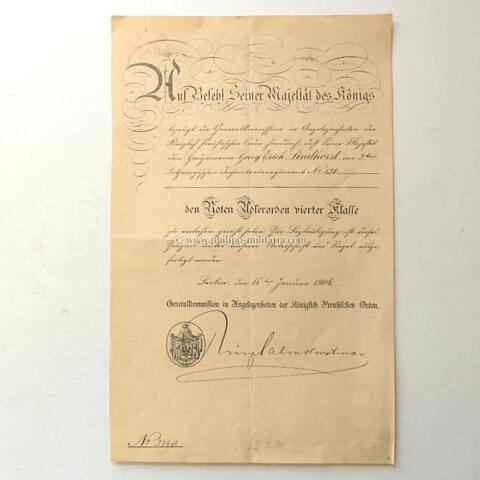 Auf Befehl Seiner Majestät des Königs
bezeugt die Generalkommission in Angelegenheiten der
Königlich Preußischen Orden hierdurch, daß Seine Majestät
dem Hauptmann Georg Erich Lindhorst im 2ten
Lothringischen Infanterieregiment No 131
den Roten Adlerorden vierter Klasse
zu verleihen geruht haben. Zur Beglaubigung ist dieses
Zeugnis unter unserer Unterschrift und Siegel ausge-
fertigt worden.
© www.philipp-militaria.com
Berlin, den Januar
Generalkommission in Angelegenheiten der Königlich Preußischen Orden.
No